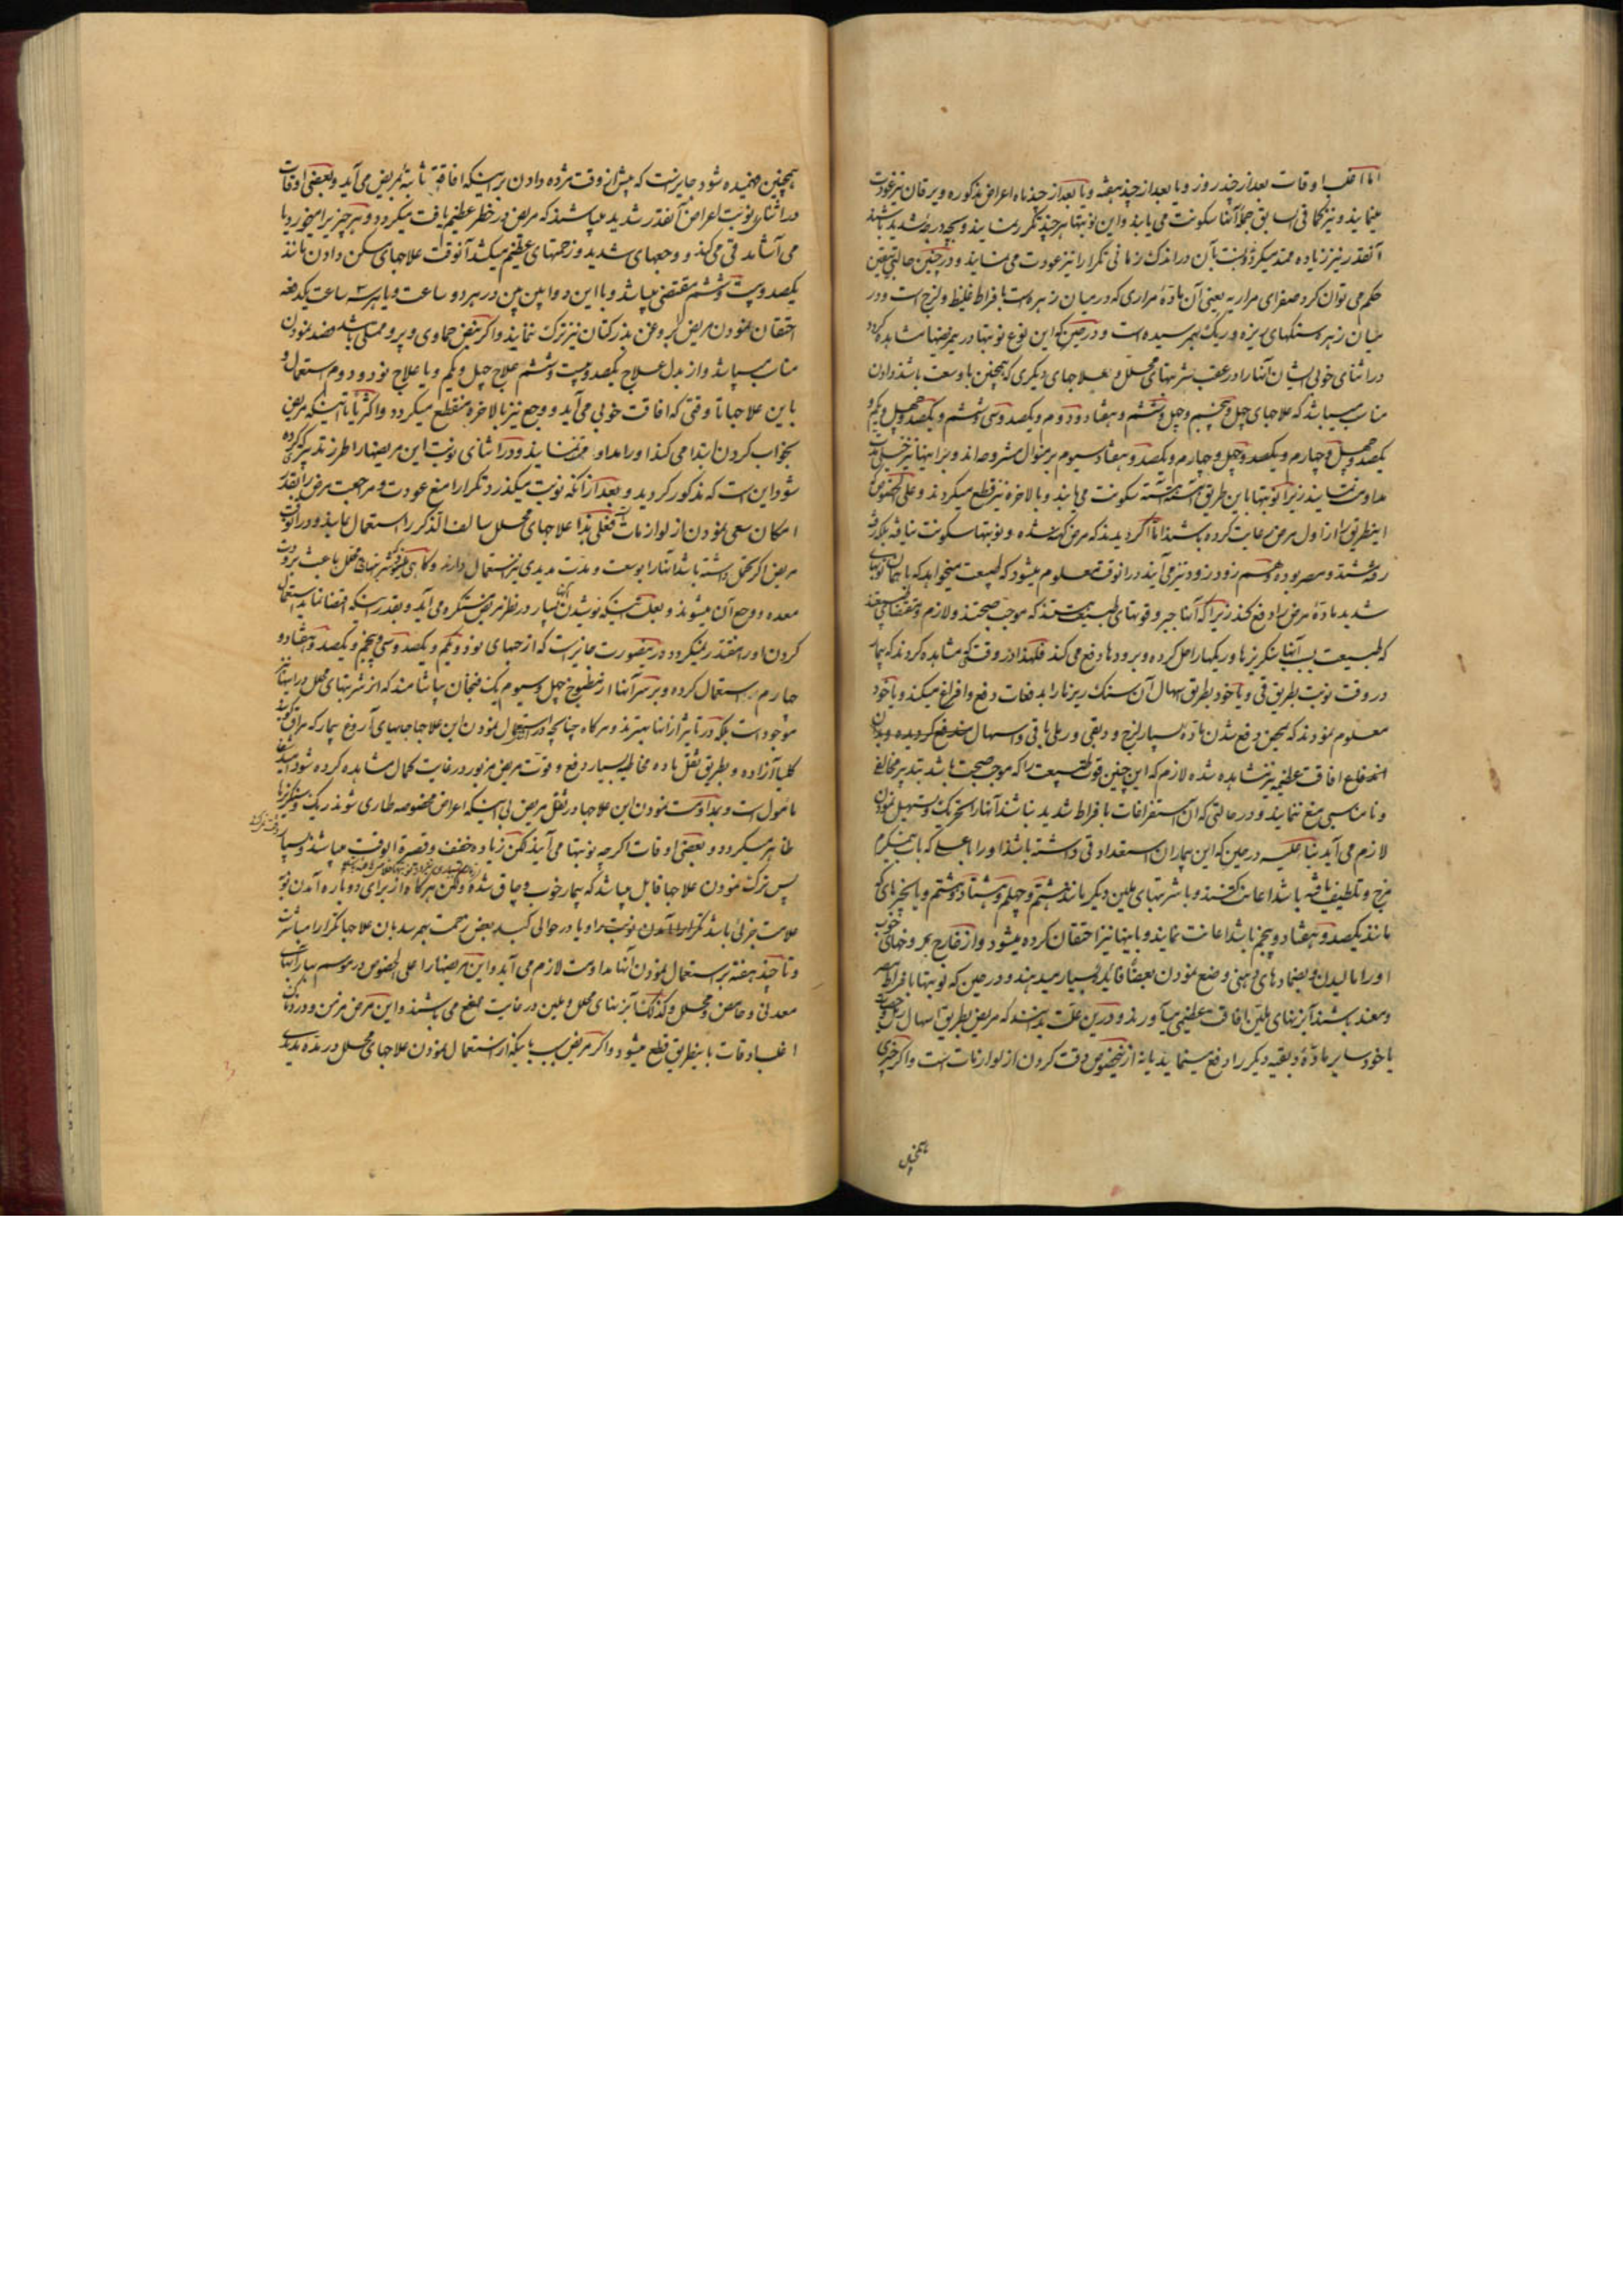 اما اغلب اوقات بعد از چند روز و یا بعد از چند هفته و یا بعد از چند ماه اعراض مذکوره و یرقان نیز عودت
مینمایند و نیز کما فی السابق جملۀ آنها سکونت می یابند و این نوبتها هر چند مکرر نمایند و بچه درجه شدید باشند
آنقدر نیز زیاده ممتد میگردد و نسبت بآن در اندک زمانی تکرارا نیز عودت می نمایند و در چنین حالتی یقین
حکم می توان کرد صفرای مراریه یعنی آن مادۀ مراری که در میان زهره است بافراط غلیظ و لزج است و در
میان زهره سنگهای ریزه و ریگ بهم رسیده است و در حین که این نوع نوبتها در مریضها مشاهده کردد
در اثنای خوبی ایشان آنها را در عقب شربتهای محلل و بعلاجهای دیگری که همچنین با وسعت باشد دادن
مناسب میباشد که علاجهای چهل و پنجم و چهل و ششم و هفتاد و دوم و یکصد و سی و ششم و یکصد و چهل و یکم و
یکصد و چهل و چهارم و یکصد و چهل و چهارم و یکصد و هفتاد و سیوم بر منوال مشروحه اند و بر اینها نیز خیلی مدت
مداومت نمایند زیرا نوبتها باین طریق آهسته آهسته سکونت می یابند و بالاخره نیز قطع میگردند و علی الخصوص
اینطریق را از اول مرض رعایت کرده باشند اما اگر دیدند که مرض کهنه شده و نوبتها سکونت نیافته بلکه رفته
رفته شدت و مصر بوده و هم زود زود نیز می آیند در آنوقت معلوم میشود که طبیعت میخواهد که با همان نوبتهای
شدید مادۀ مرض را دفع کند زیرا که آنها جبر و قوتهای طبیعت هستند که موجب صحتند و لازم و مقتضای طبیعتند
که طبیعت بسبب آنها سنگریزها و ریگها را حل کرده و برودها دفع می کند فلهذا در وقتی که مشاهده کردند که بیمار
در وقت نوبت بطریق قی و یا خود بطریق اسهال آن سنگ ریزها را بدفعات دفع و افراغ میکند و یا خود
معلوم نمودند که بهمین دفع شدن مادۀ بسیار لزج و دبقی و رملی با قی و اسهال مندفع گردیده و بدان
اندفاع افاقت عظیمه نیز مشاهده شده لازم که این چنین قوت طبیعت را که موجب صحت باشد بتدبیر مخالف
و نا مناسبی منع ننمایند و در حالتی که آن استفراغات بافراط شدید نباشند آنها را تحریک و تسهیل نمودن
لازم می آید بناء علیه در حین که این بیماران استعداد قی داشته باشند او را با عسلی که باب نیم گرم
مزج و تلطیف یافته باشد اعانت کنند و با شربتهای ملین دیگر مانند هشتم و چهلم و هشتاد و هشتم و یا بخیرهای
مانند یکصد و هفتاد و پنجم باشد اعانت نمایند و باینها نیز احتقان کرده میشود و از خارج بمروخهای خوب
او را مالیدن و بضمادهای دهنی وضع نمودن بعضا فایده بسیار میدهند و در حین که نوبتها بافراط مصر
و معند باشند آبزنهای ملین افاقت عظیمی میآورند و درین علت بدانند که مریض بطریق اسهال رمل و حصات
یا خود سایر مادۀ دبقیه دیگر را دفع مینماید یا نه از اینخصوص دقت کردن از لوازمات است و اگر چیزی
همچنین
همچنین فهمیده شود جایز نیست که پیش از وقت مژده دادن بر اینکه افاقه تامه بمریض می آید و بعضی اوقات
در اثنای نوبت اعراض آنقدر شدید میباشند که مریض در خطر عظیم یافت میگردد و هر چیز را میخورد یا
می آشامد قی می کند و وجعهای شدید و زحمتهای عظیم میکشد آنوقت علاجهای مسکن دادن مانند
یکصد و بیست و ششم مقتضی میباشد و با این دوا بین بین در هر دو ساعت و یا هر سه ساعت یکدفعه
احتقان نمودن مریض را بروغن بذر کتان نیز ترک ننمایند و اگر نبض حماوی و پر و ممتلی باشد فصد نمودن
مناسب میباشد و از بدل علاج یکصد و بیست و ششم علاج چهل و یکم و یا علاج نود و دوم استعمال و
باین علاجها تا وقتی که افاقت خوبی می آید و وجع نیز بالاخره منقطع میگردد و اکثریا تا اینکه مریض
بخواب کردن ابتدا می کند او را مداومت نمایند و در اثنای نوبت این مریضها را طرز تدبیر که کرده
شود این است که مذکور گردید و بعد از آنکه نوبت میگذرد تکرارا منع عودت و مراجعت مرض را بقدر
امکان سعی نمودن از لوازمات است فعلی هذا علاجهای محلل سالف الذکر را استعمال نمایند و در آنوقت
مریض اگر تحمل داشته باشد آنها را بوسعت و مدت مدیدی نیز استعمال دارند و گاهی میشود که شربتهای محلل باعث برودت
معده و وجع آن میشوند و بعلت اینکه نوشیدن بسیار در نظر مریض مستکره می آید و بقدر اینکه اقتضا نماید استعمال
کردن او را مقتدر نمیگردد در ینصورت جایز است که از حبهای نود و یکم و یکصد و سی و پنجم و یکصد و هفتاد و
چهارم استعمال کرده و بر سر آنها از مطبوخ چهل و سیوم یک فنجان بیاشامند که از شربتهای محلل در اینها نیز
موجود است بلکه در تاثیر از آنها بهترند و هر گاه چنانچه در استعمال نمودن این علاجها جاهای آروغ بیمار که مراق گویند
کلیا آزاده و بطریق ثفل ماده مخاطیه بسیار دفع و قوت مریض مزبور در غایت کمال مشاهده کرده شود امید شفا
مأمول است و بمداومت نمودن این علاجها در ثفل مریض بی اینکه اعراض مخصوصه طاری شوند ریگ و سنگریزها
ظاهر میگردد و بعضی اوقات اگر چه نوبتها می آیند لکن زیاده خفیف و قصیرة الوقت میباشند و بسیار
پس ترک نمودن علاجها قابل میباشد که بیمار خوب و چاق شده و لکن هر گاه از برای دوباره آمدن نوبت
علامت جزئی باشد تکرارا آمدن نوبت را و یا در حوالی کبد بعض زحمت بهم رسد بان علاجها تکرارا مباشرت
و تا چند هفته بر استعمال نمودن آنها مداومت لازم می آید و این مریضها را علی الخصوص در موسم بهار آبهای
معدنی و حامض و محلل و کذلک آبزنهای محلل و ملین در غایت نافع می باشند و این مرض مزمن و دور و دراز
اغلب اوقات باینطریق قطع میشود و اگر مریض بسبب اینکه از استعمال نمودن علاجهای محلل در مده مدیدی